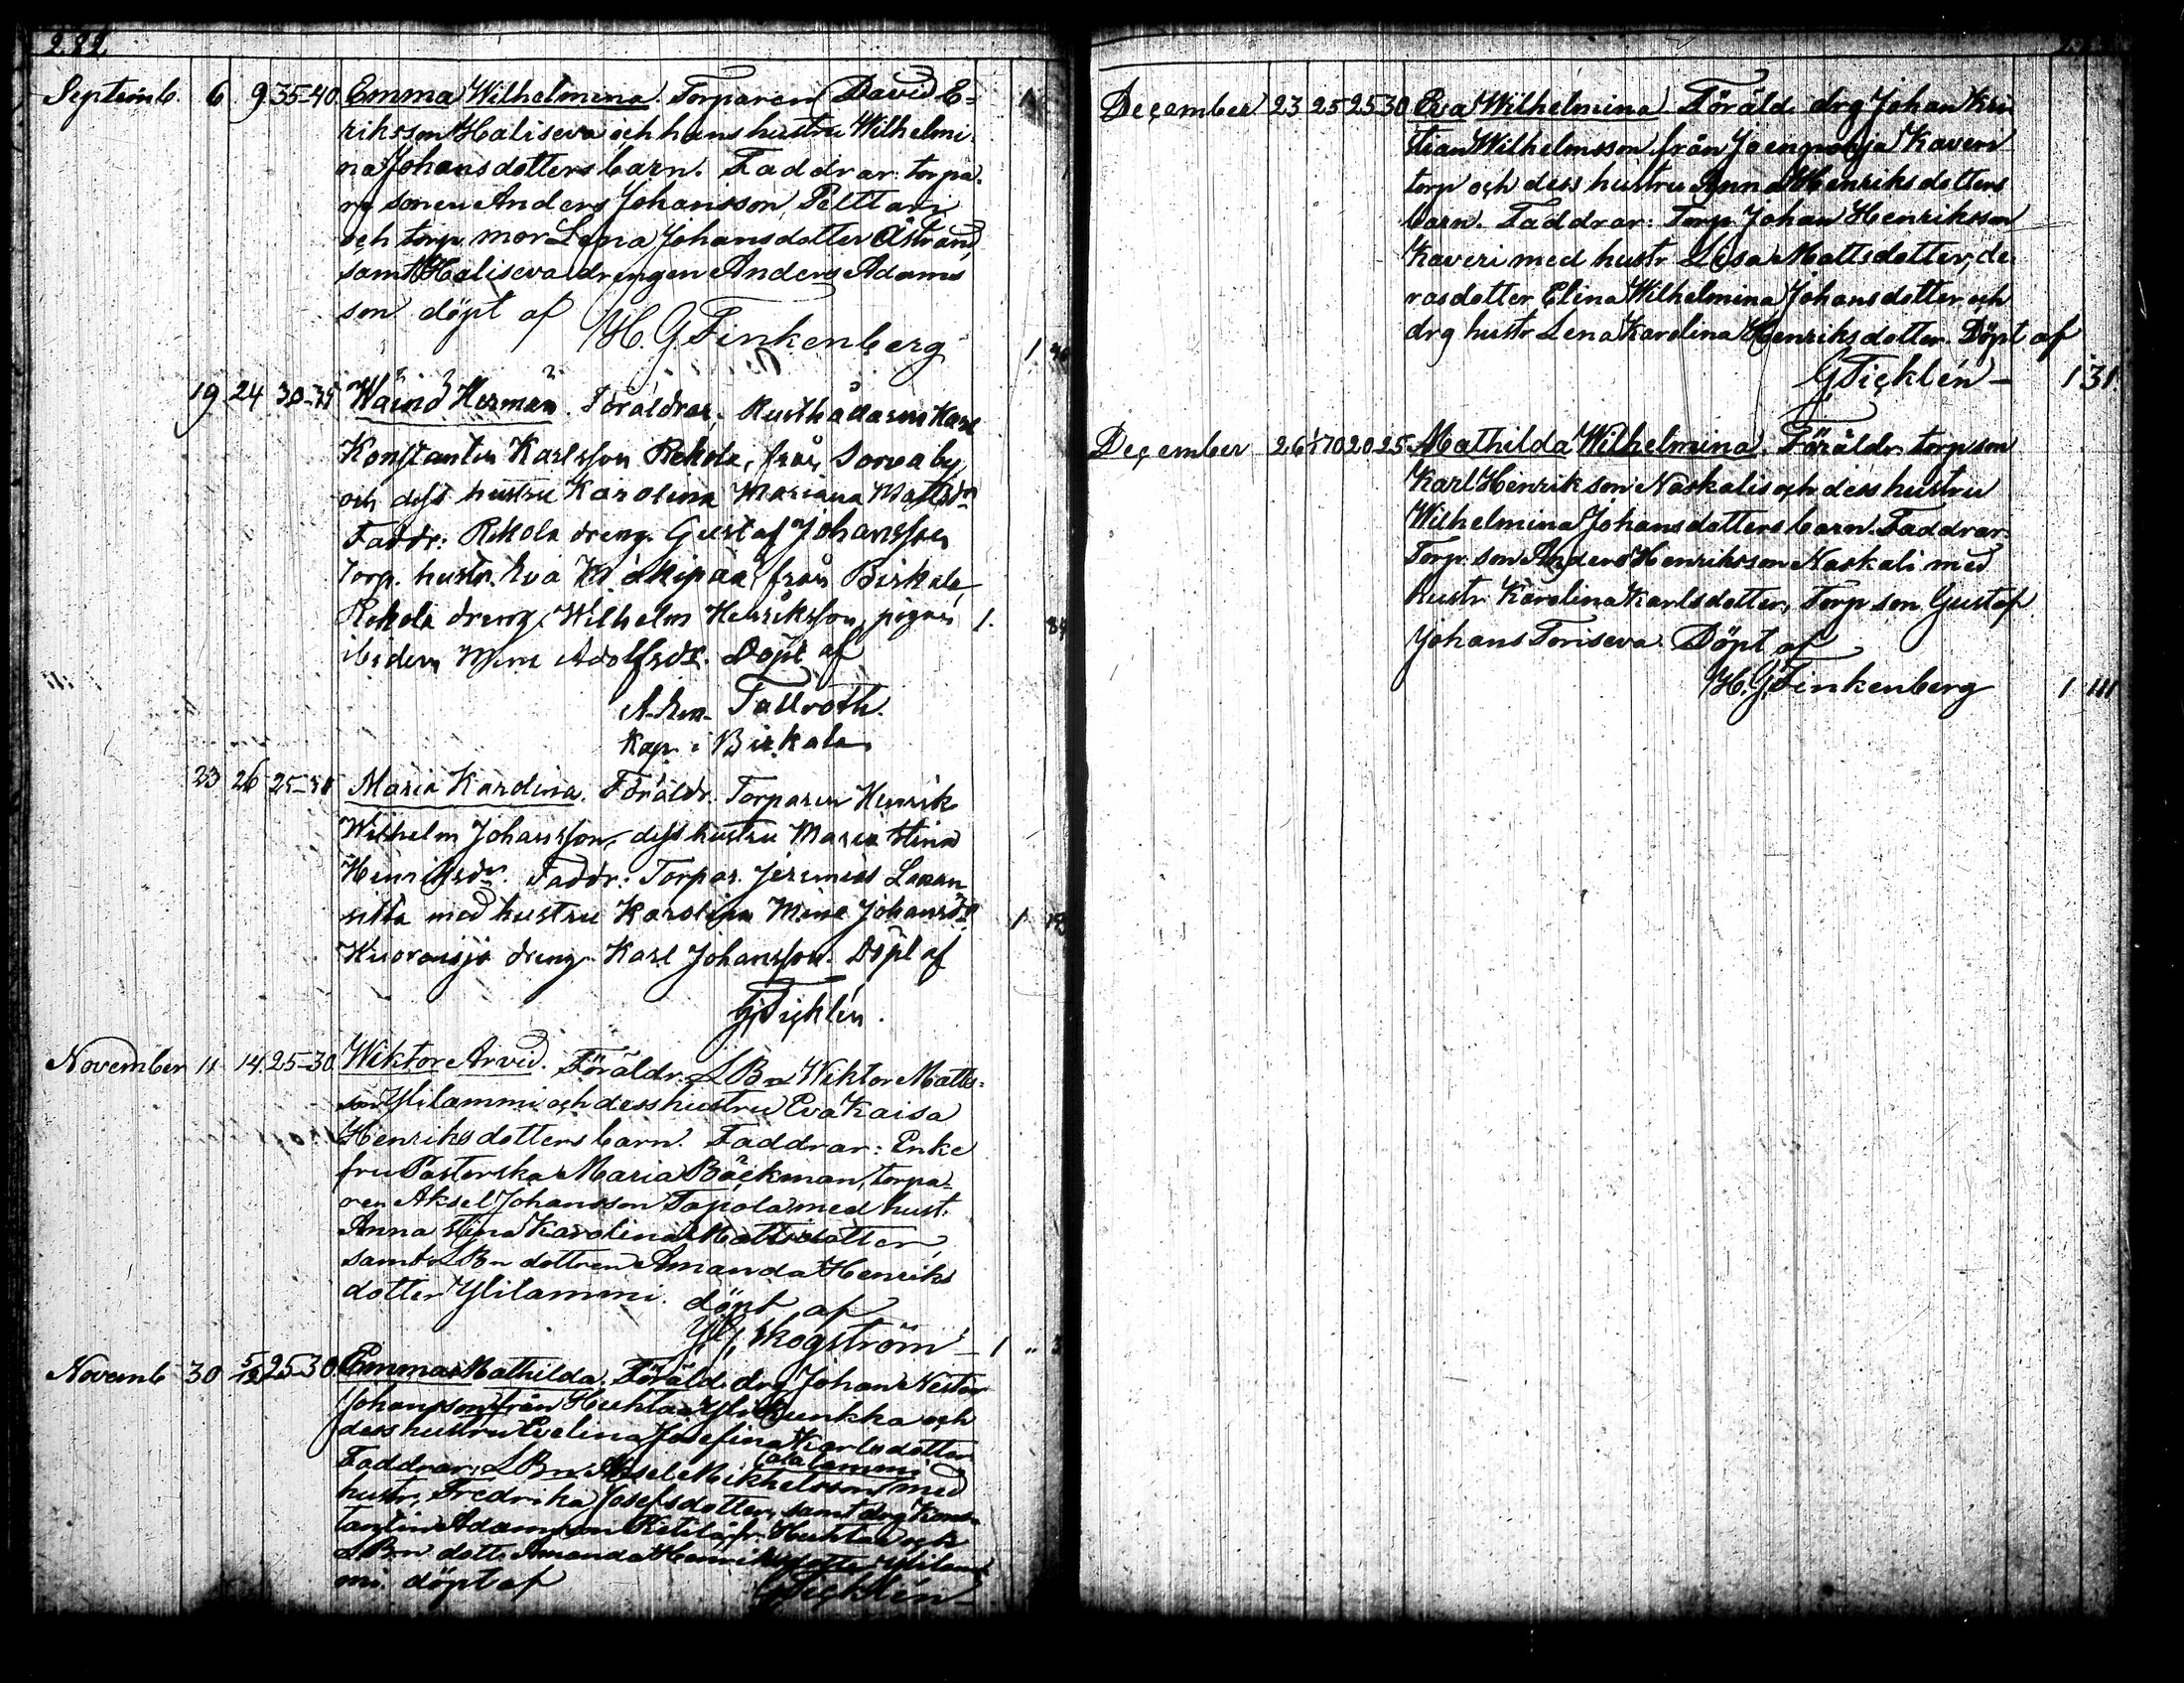 282
Septemb. 6 9 35-40 Emma Wilhelmina. Torparen David E-
riksson Haliseva och hans hustru Wilhelmi-
na Johansdotters barn. Faddrar: torpa-
re sonen Anders Johansson Pelttari
och torp. mor Lena Johansdotter Åstrand,
samt Haliseva drengen Anders Adams
son döpt af
H. G. Finkenberg 1
19 24 30-35 Wäinö Herman. Föräldrar, Rusthållaren Karl
Konstantin Karlsson Rekola, från Sorva by,
och dess hustru Karolina Mariana Mattsdr
Faddr: Rekola dreng. Gustaf Johansson
Torp. hustr. Eva från Birkala,
Rekola dreng. Wilhelm Henriksson, pigan 1.
ibidem Mina Adolfsdr. Döpt af
Tallroth.
Kap. i Birkala
23 26 25-30 Maria Karolina. Föräldr. Torparen Henrik
Wilhelm Johansson, dess hustru Maria Stina
Henriksdr. Faddr: Torpar. Jeremias
med hustru Karolina Mina Johansdr 1
dreng. Karl Johansson. Döpt af
G Ticklén.
November 11 14 25-30 Wiktor Arvid. Föräldr. LBn Wiktor Matts-
son Ylilammi och dess hustru Eva Kaisa
Henriksdotters barn. Faddrar: Enke
fru Pastorska Maria Bäckman, torpa-
ren Aksel Johansson Tapola med hust.
Anna Stina Karolina Mattsdotter,
samt LBn dottren Amanda Henriks
dotter Ylilammi. döpt af
Skogström 1 " 3
Novemb 30 5/12 25-30 Emma Mathilda. Föräld. drg Johan Nestor
Johansson från Huhtaa Ylihunkka och
dess hustru Evelina Josefina Karlsdotter
Alalammi
Faddrar: LBn Aksel Mikkelsson med
hustr. Fredrika Josefsdotter, samt drg Kons-
tantin Adamsson fr. Huhtaa och
LBn dott. Amanda Henriksdotter Ylilam-
mi. döpt af G Ticklén
December 23 25 25 30 Eva Wilhelmina. Föräld. drg Johan Kri-
stian Wilhelmsson från Kaveri
torp och dess hustru Anna Henriksdotters
barn. Faddrar: Torp. Johan Henriksson
Kaveri med hustr. Lisa Mattsdotter, de-
ras dotter Elina Wilhelmina Johansdotter och
drg hustr Lena Karolina Henriksdotter. Döpt af
G Ticklén 1 31
December 26 1/1 70 20-25 Mathilda Wilhelmina. Föräldr. torp son
Karl Henrikson Naskali och dess hustru
Wilhelmina Johansdotters barn. Faddrar.
Torp. son Anders Henriksson Naskali med
hustr. Karolina Karlsdotter, Torp son Gustaf
Johans Toriseva. Döpt af
H. G. Finkenberg 1 111